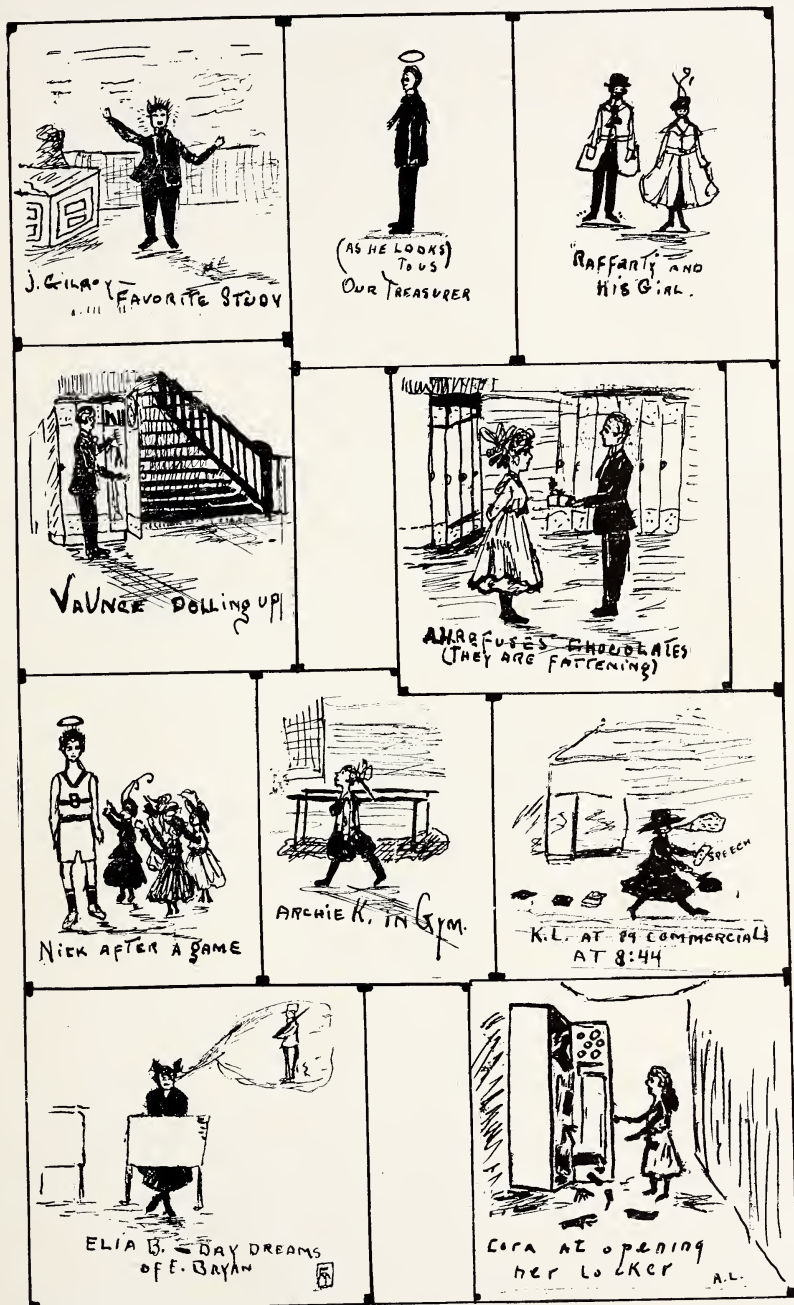 J. GILROY FAVORITE STUDY
(AS HE LOOKS)
TO US
OUR TREASURER
RAFFARTY AND
HIS GIRL.
VAUNCE DOLLING UP
A.H. REFUSES CHOCOLATES
(THEY ARE FATTENING)
B
NICK AFTER A GAME
ARCHIE K. IN GYM.
SPEECH
K.L. AT 89 COMMERCIAL
AT 8:44
ELIA B. - DAY DREAMS
OF E. BRYAN
Cora AT opening
her Locker
A.L.